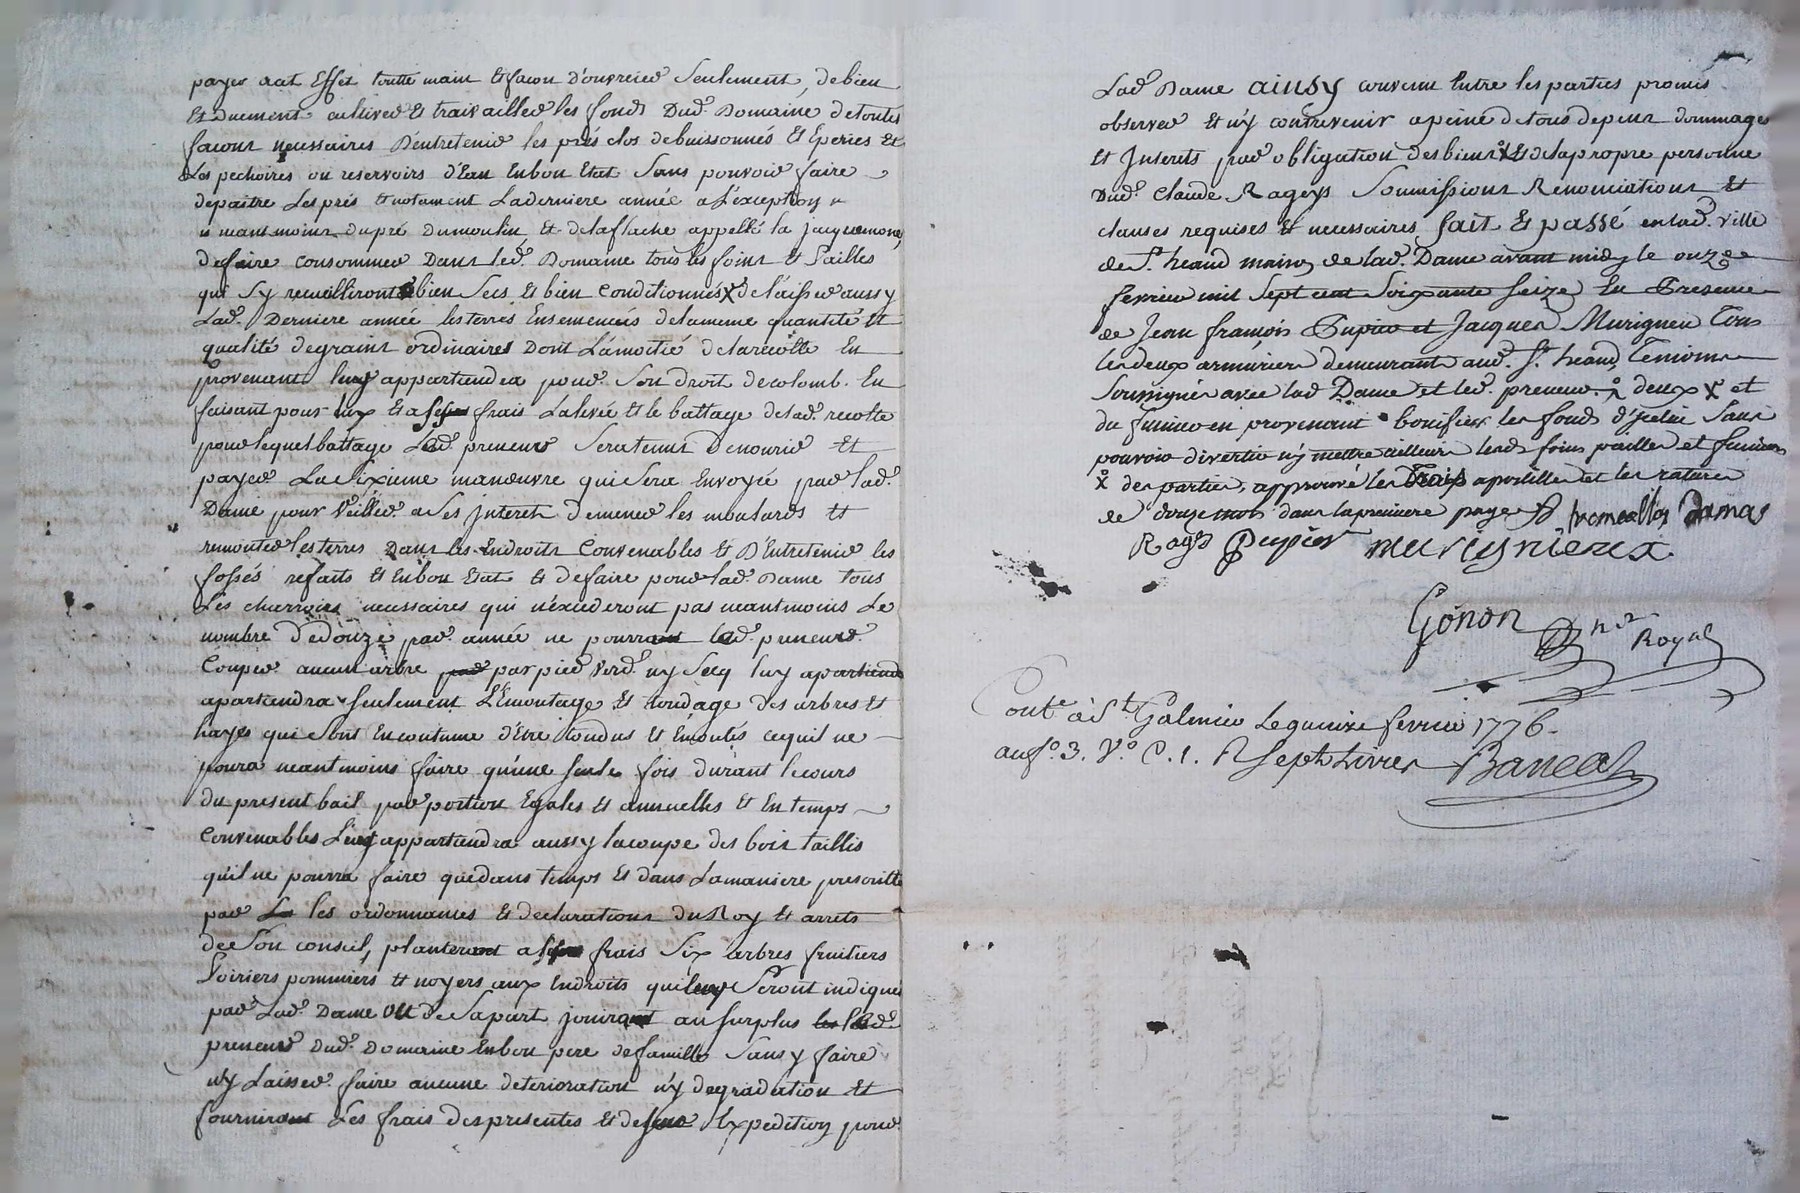 payer a cet Effet toutte main & facon D'ouvrier Seulement, de bien
Et Duement cultiver & travailler les fonds Dud. Domaine de toutes
facons necessaires D'entretenir les prés clos debuissonnés Et Eperies Et
Les pechoires ou reservoirs d'Eau En bon Etat Sans pouvoir faire
depaitre Les prés & notament La derniere année a L'exception
neantmoins du pré du moulin Et de la flache appellé la jacquemone,
de faire consommer Dans led. Domaine tous les foins Et Pailles
qui S'y recuilliront bien Secs Et bien Conditionnés X de laisser aussy
Lad. Derniere année les terres Ensemencés de la meme quantité Et
qualité de grains ordinaires Dont La moitié de la recolte En
provenant luy appartiendra pour Son droit de colomb. En
faisant pour lux Et a ses frais La levée Et le battage de lad. recolte
pour lequel battage Led. preneur Sera tenus De nourir Et
payer La Sixieme manœuvre qui Sera Envoyée par lad.
Dame pour Veiller a Ses Interets De mener les moutards Et
remonter les terres Dans les Endroits Convenables Et D'Entretenir les
fossés refaits Et En bon Etat Et de faire pour lad. Dame tous
Les charrois necessaires qui n'éxcederont pas neantmoins Le
nombre De douze par année ne pourra led. preneur
Couper aucun arbre par pied Verd ny Secq luy apartiendra
apartiendra Seulement L'Emontage Et tondage des arbres Et
hayes qui Sont En coutume d'Etre tondus Et Emontés ce qu'il ne
poura neantmoins faire qu'une Seule fois durant le cours
du present bail par portion Egales Et annuelles Et En temps
Convenables Luy appartiendra aussy la coupe des bois taillis
qu'il ne pourra faire que dans temps Et dans La maniere prescritte
par les ordonnances Et declarations du Roy Et arrets
de Son conseil, plantera a ses frais Six arbres fruitiers
Poiriers pommiers Et noyers aux Endroits qui luy Seront indiqués
par Lad. Dame Ou de Sa part jouira au surplus led.
preneur Dud. Domaine En bon pere de famille Sans y faire
ny Laisser faire aucune deterioration n'y degradation Et
fournira Les frais des presentes Et de leur Expedition pour
Lad. Dame ainsy convenu Entre les parties promis
observer Et n'y contrevenir a peine de tous depens dommages
Et Interets par obligation des biens X & de la propre personne
Dud. Claude Rageys Soumissions Renonciations Et
clauses requises Et necessaires fait Et passé en lad. Ville
de St. heand maison de lad. Dame avant midy le onze
fevrier mil Sept cent Soixante Seize En Presence
de Jean françois Pupier et Jacques Murigneu Tous
les deux armuriers demeurant aud. St. heand, Temoins
Soussignés avec lad Dame et led. preneur. X deux X et
du fumier en provenant bonifier les fonds d'jcelui Sans
pouvoir divertir n'y mettre ailleurs lesd. foins pailles et fumiers
X des parties, approuvé les Trois apostilles et les ratures
de douze mots dans la premiere page Damas
Rageys Pupier murignieux
Gonon nre Royal
Conte. à St. Galmier Le quinze fevrier 1776.
au fo. 3. Vo. C. 1. R Sept Livres Bancal